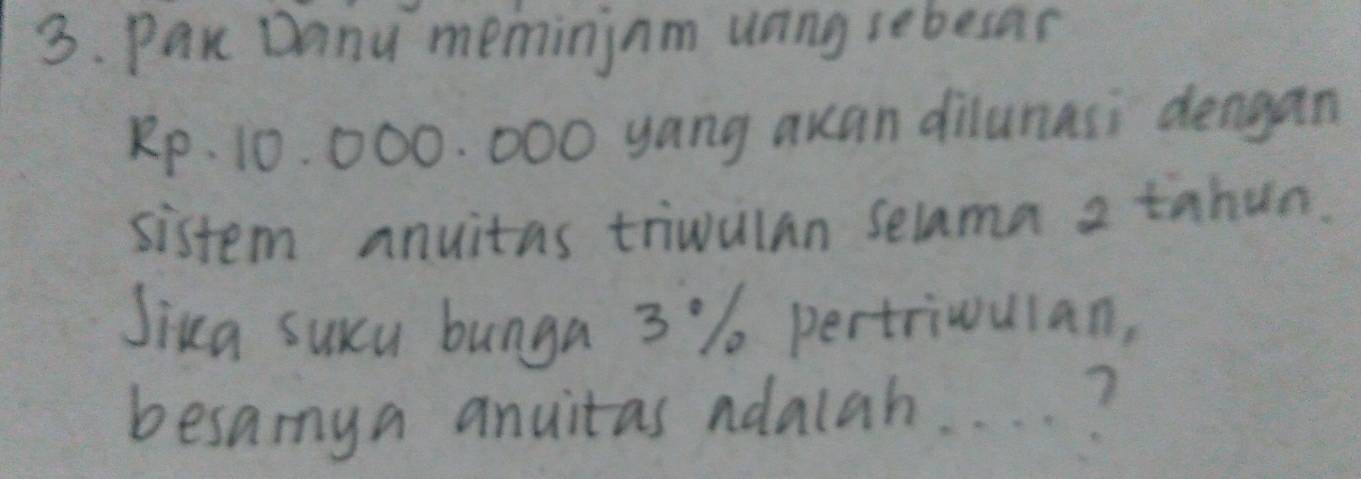 3. Pak Danu meminjam uang sebesar
Rp. 10.000.000 yang akan dilunasi dengan
sistem anuitas triwulan selama 2 tahun.
Jika suku bunga 3% pertriwulan,
besarnya anuitas adalah ....?